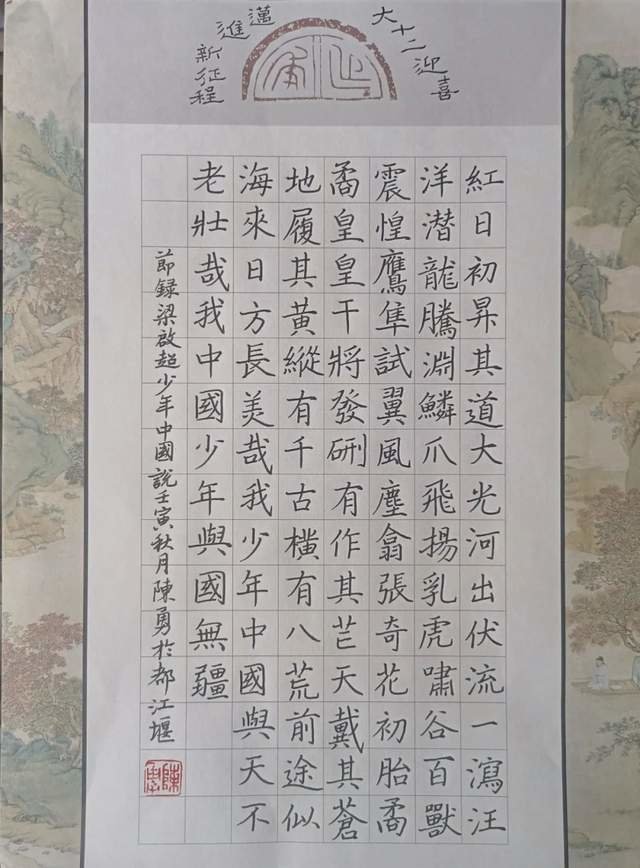 喜迎二十大
邁進新征程
紅日初昇其道大光河出伏流一瀉汪
洋潜龍騰淵鱗爪飛揚乳虎嘯谷百獸
震惶鷹隼試翼風塵翕張奇花初胎矞
矞皇皇干將發硎有作其芒天戴其蒼
地履其黃縱有千古橫有八荒前途似
海來日方長美哉我少年中國與天不
老壯哉我中國少年與國無疆
節錄梁啟超少年中國說壬寅秋月陳勇於都江堰